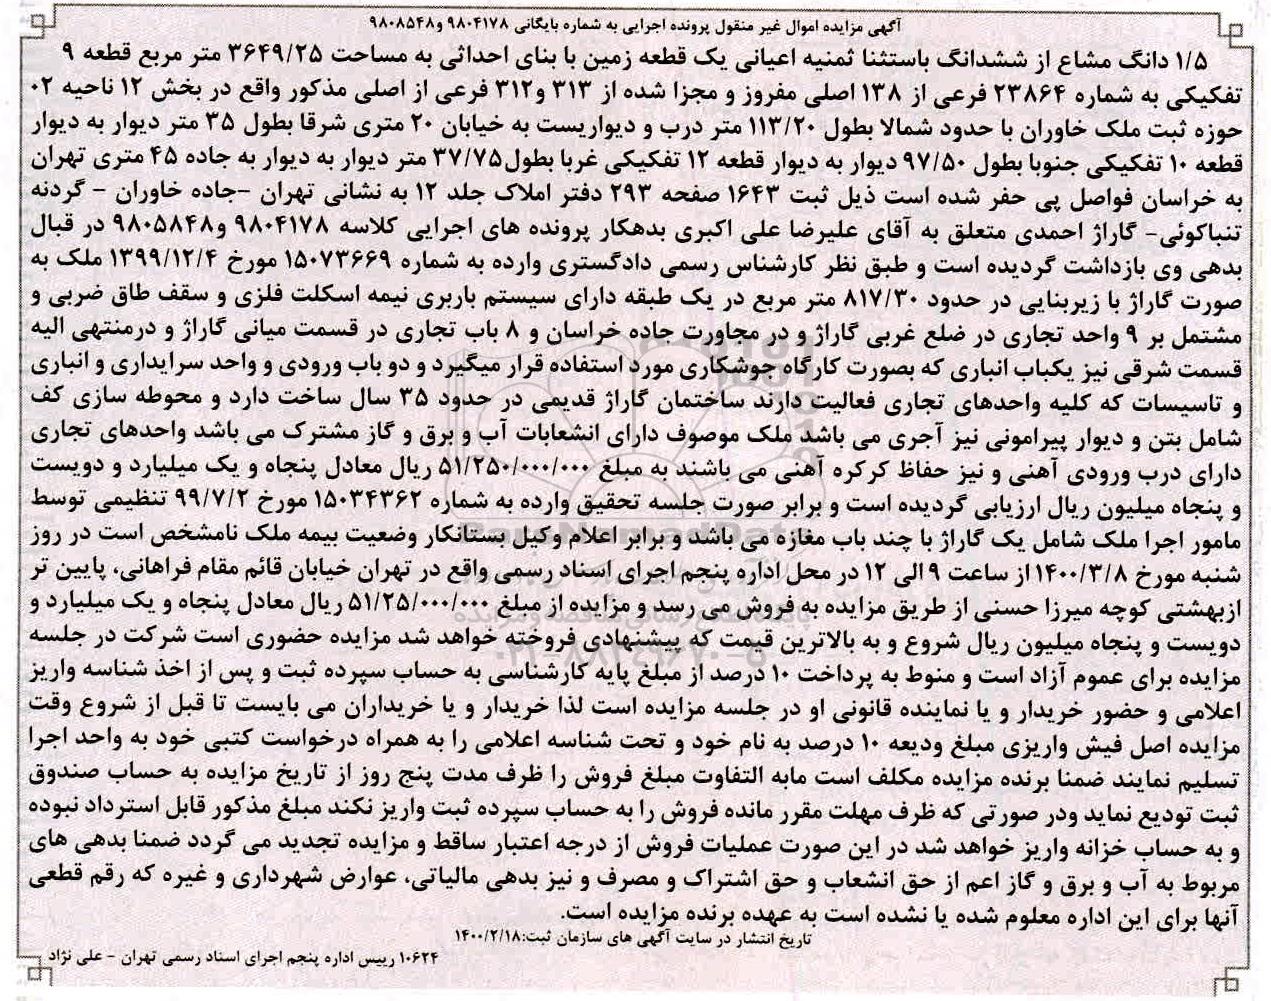 آگهی مزایده اموال غیر منقول پرونده اجرایی به شماره بایگانی ۹۸۰۴۱۷۸ و۹۸۰۸۵۴۸
۱/۵ دانگ مشاع از ششدانگ باستثنا ثمنیه اعیانی یک قطعه زمین با بنای احداثی به مساحت ۳۶۴۹/۲۵ متر مربع قطعه ۹
تفکیکی به شماره ۲۳۸۶۴ فرعی از ۱۳۸ اصلی مفروز و مجزا شده از ۳۱۳ و۳۱۲ فرعی از اصلی مذکور واقع در بخش ۱۲ ناحیه ۰۲
حوزه ثبت ملک خاوران با حدود شمالا بطول ۱۱۳/۲۰ متر درب و دیواریست به خیابان ۲۰ متری شرقا بطول ۳۵ متر دیوار به دیوار
قطعه ۱۰ تفکیکی جنوبا بطول ۹۷/۵۰ دیوار به دیوار قطعه ۱۲ تفکیکی غربا بطول۳۷/۷۵ متر دیوار به دیوار به جاده ۴۵ متری تهران
به خراسان فواصل پی حفر شده است ذیل ثبت ۱۶۴۳ صفحه ۲۹۳ دفتر املاک جلد ۱۲ به نشانی تهران -جاده خاوران - گردنه
تنباکوئی- گاراژ احمدی متعلق به آقای علیرضا علی اکبری بدهکار پرونده های اجرایی کلاسه ۹۸۰۴۱۷۸ و۹۸۰۵۸۴۸ در قبال
بدهی وی بازداشت گردیده است و طبق نظر کارشناس رسمی دادگستری وارده به شماره ۱۵۰۷۳۶۶۹ مورخ ۱۳۹۹/۱۲/۴ ملک به
صورت گاراژ با زیربنایی در حدود ۸۱۷/۳۰ متر مربع در یک طبقه دارای سیستم باربری نیمه اسکلت فلزی و سقف طاق ضربی و
مشتمل بر ۹ واحد تجاری در ضلع غربی گاراژ و در مجاورت جاده خراسان و ۸ باب تجاری در قسمت میانی گاراژ و درمنتهی الیه
قسمت شرقی نیز یکباب انباری که بصورت کارگاه جوشکاری مورد استفاده قرار میگیرد و دو باب ورودی و واحد سرایداری و انباری
و تاسیسات که کلیه واحدهای تجاری فعالیت دارند ساختمان گاراژ قدیمی در حدود ۳۵ سال ساخت دارد و محوطه سازی کف
شامل بتن و دیوار پیرامونی نیز آجری می باشد ملک موصوف دارای انشعابات آب و برق و گاز مشترک می باشد واحدهای تجاری
دارای درب ورودی آهنی و نیز حفاظ کرکره آهنی می باشند به مبلغ ۵۱/۲۵۰/۰۰۰/۰۰۰ ریال معادل پنجاه و یک میلیارد و دویست
و پنجاه میلیون ریال ارزیابی گردیده است و برابر صورت جلسه تحقیق وارده به شماره ۱۵۰۳۴۳۶۲ مورخ ۹۹/۷/۲ تنظیمی توسط
مامور اجرا ملک شامل یک گاراژ با چند باب مغازه می باشد و برابر اعلام وکیل بستانکار وضعیت بیمه ملک نامشخص است در روز
شنبه مورخ ۱۴۰۰/۳/۸ از ساعت ۹ الی ۱۲ در محل اداره پنجم اجرای اسناد رسمی واقع در تهران خیابان قائم مقام فراهانی، پایین تر
ازبهشتی کوچه میرزا حسنی از طریق مزایده به فروش می رسد و مزایده از مبلغ ۵۱/۲۵/۰۰۰/۰۰۰ ریال معادل پنجاه و یک میلیارد و
دویست و پنجاه میلیون ریال شروع و به بالاترین قیمت که پیشنهادی فروخته خواهد شد مزایده حضوری است شرکت در جلسه
مزایده برای عموم آزاد است و منوط به پرداخت ۱۰ درصد از مبلغ پایه کارشناسی به حساب سپرده ثبت و پس از اخذ شناسه واریز
اعلامی و حضور خریدار و یا نماینده قانونی او در جلسه مزایده است لذا خریدار و یا خریداران می بایست تا قبل از شروع وقت
مزایده اصل فیش واریزی مبلغ ودیعه ۱۰ درصد به نام خود و تحت شناسه اعلامی را به همراه درخواست کتبی خود به واحد اجرا
تسلیم نمایند ضمنا برنده مزایده مکلف است مابه التفاوت مبلغ فروش را ظرف مدت پنج روز از تاریخ مزایده به حساب صندوق
ثبت تودیع نماید ودر صورتی که ظرف مهلت مقرر مانده فروش را به حساب سپرده ثبت واریز نکند مبلغ مذکور قابل استرداد نبوده
و به حساب خزانه واریز خواهد شد در این صورت عملیات فروش از درجه اعتبار ساقط و مزایده تجدید می گردد ضمنا بدهی های
مربوط به آب و برق و گاز اعم از حق انشعاب و حق اشتراک و مصرف و نیز بدهی مالیاتی، عوارض شهرداری و غیره که رقم قطعی
آنها برای این اداره معلوم شده یا نشده است به عهده برنده مزایده است.
تاریخ انتشار در سایت آگهی های سازمان ثبت:۱۴۰۰/۲/۱۸
۱۰۶۲۴ رییس اداره پنجم اجرای اسناد رسمی تهران - علی نژاد